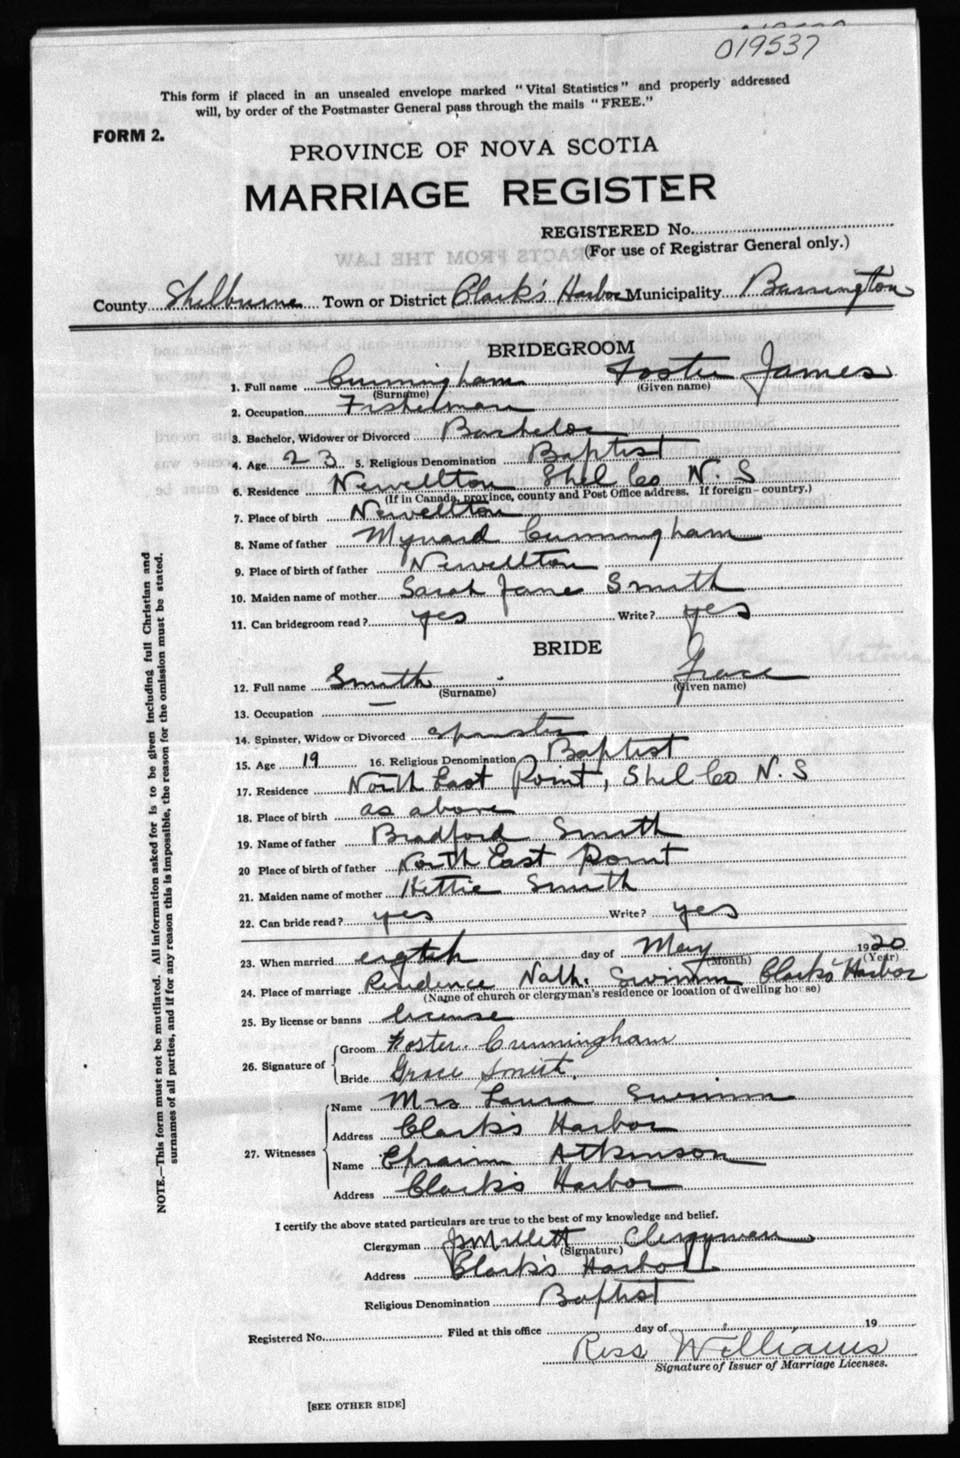 019537
This form if placed in an unsealed envelope marked "Vital Statistics" and properly addressed
will, by order of the Postmaster General pass through the mails "FREE."
FORM 2.
PROVINCE OF NOVA SCOTIA
MARRIAGE REGISTER
REGISTERED No.
(For use of Registrar General only.)
County Shelburne Town or District Clark's Harbor Municipality Barrington
BRIDEGROOM
1. Full name Cunningham Foster James
(Surname) (Given name)
2. Occupation Fisherman
3. Bachelor, Widower or Divorced Bachelor
4. Age 23 5. Religious Denomination Baptist
6. Residence Newellton Shel Co N. S
(If in Canada, province, county and Post Office address. If foreign - country.)
7. Place of birth Newellton
8. Name of father Mynard Cunningham
9. Place of birth of father Newellton
10. Maiden name of mother Sarah Jane Smith
11. Can bridegroom read? yes Write? yes
BRIDE
12. Full name Smith Grace
(Surname) (Given name)
13. Occupation
14. Spinster, Widow or Divorced Spinster
15. Age 19 16. Religious Denomination Baptist
17. Residence North East Point, Shel Co N. S
18. Place of birth as above
19. Name of father Bradford Smith
20 Place of birth of father North East Point
21. Maiden name of mother Hettie Smith
22. Can bride read? yes Write? yes
23. When married day of May 1920
(Month) (Year)
24. Place of marriage Residence Nath. Swimm Clark's Harbor
(Name of church or clergyman's residence or location of dwelling house)
25. By license or banns license
26. Signature of
Groom Foster Cunningham
Bride Grace Smith.
27. Witnesses
Name Mrs Laura Swimm
Address Clark's Harbor
Name Ephraim Atkinson
Address Clark's Harbor
I certify the above stated particulars are true to the best of my knowledge and belief.
Clergyman Clergyman
(Signature)
Address Clark's Harbor
Religious Denomination Baptist
Registered No. Filed at this office day of 19
Ross Williams
Signature of Issuer of Marriage Licenses.
[SEE OTHER SIDE]
NOTE.—This form must not be mutilated. All information asked for is to be given including full Christian and
surnames of all parties, and if for any reason this is impossible, the reason for the omission must be stated.